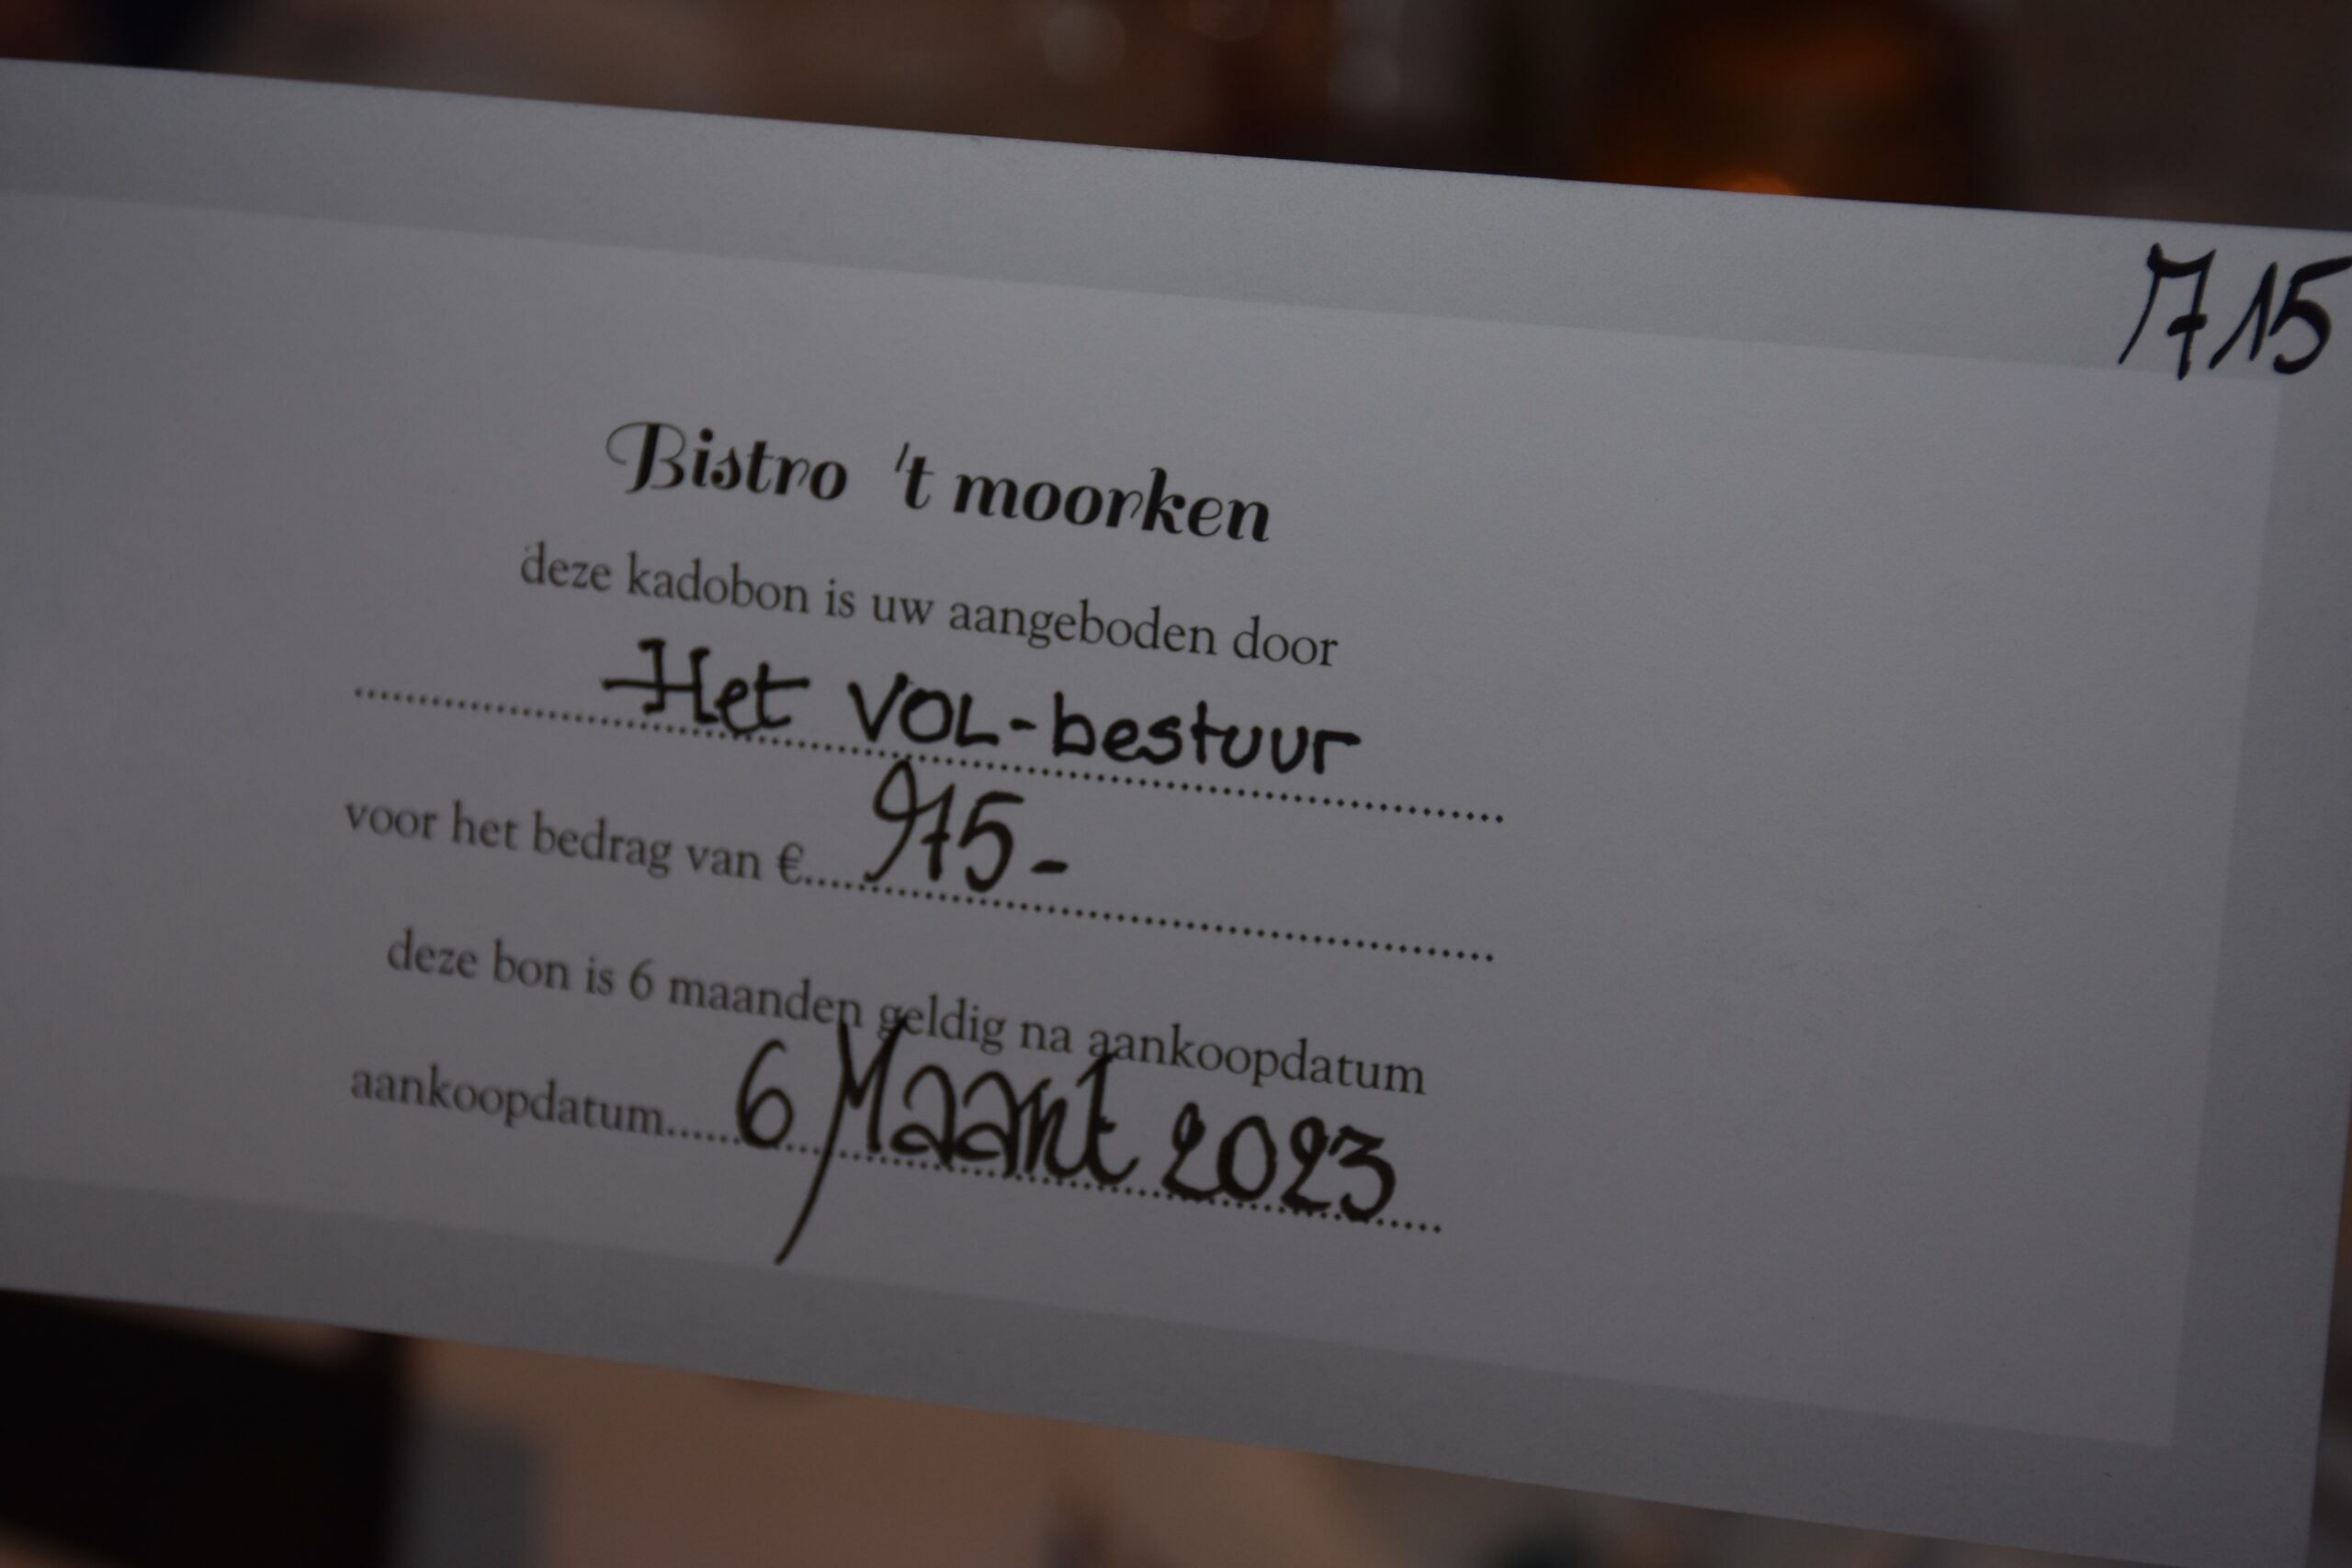 715
Bistro 't moorken
deze kadobon is uw aangeboden door
Het VOL-bestuur
voor het bedrag van €..... 75-
deze bon is 6 maanden geldig na aankoopdatum
aankoopdatum...... 6 Maart 2023